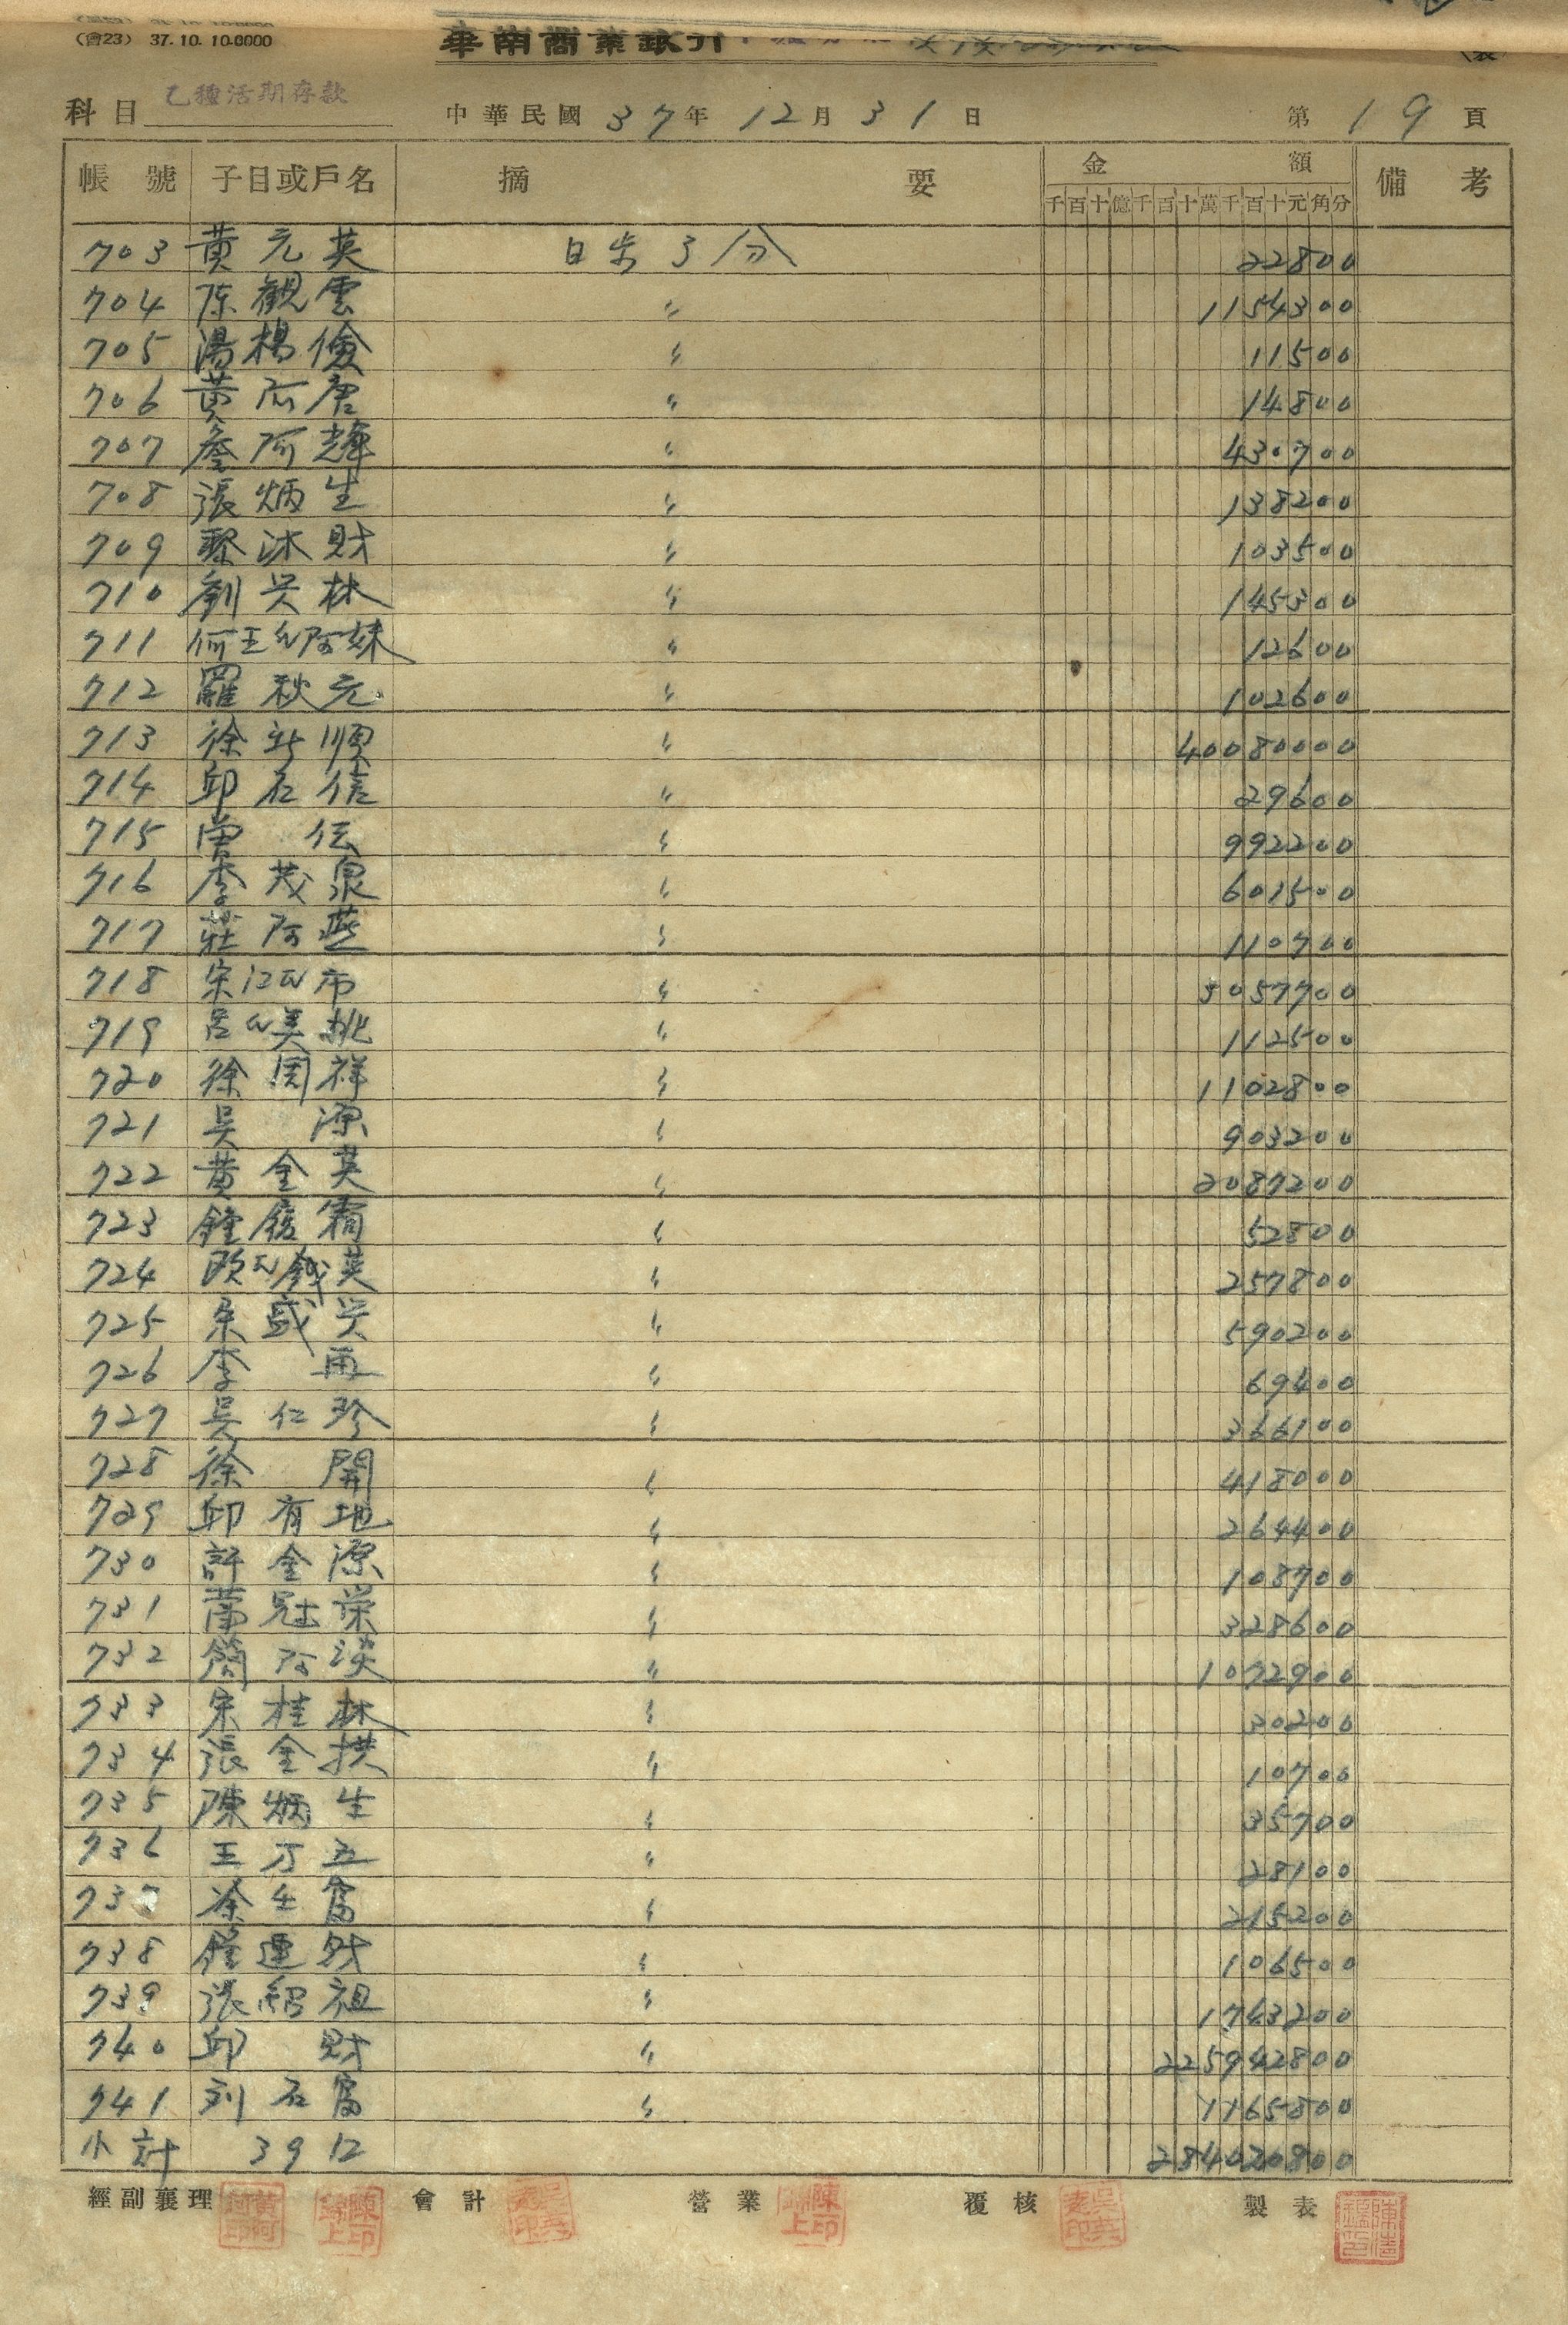 (會23) 37.10.10.0000
華南商業銀行
科目 乙種活期存款 中華民國 37年 12月 31日 第 19 頁
帳號 子目或戶名 摘要 金額 備考
千百十億千百十萬千百十元角分
703 黃元英 日步3分 22800
704 陳觀雲 〃 1154300
705 湯楊儉 〃 11500
706 黃阿唐 〃 14800
707 詹阿輝 〃 430700
708 張炳生 〃 138200
709 黎沐財 〃 103500
710 劉吳林 〃 145300
711 何王氏阿妹 〃 12600
712 羅秋元 〃 102600
713 徐新順 〃 40080000
714 邱石信 〃 29600
715 曾伝 〃 992200
716 李茂泉 〃 601500
717 莊阿燕 〃 110700
718 宋江氏市 〃 3057700
719 呂氏美桃 〃 112500
720 徐周祥 〃 1102800
721 吳源 〃 903200
722 黃金英 〃 2087200
723 鍾霜 〃 52800
724 欧氏銭英 〃 257800
725 宋盛 〃 590200
726 李再 〃 69400
727 吳仁珍 〃 366100
728 徐開 〃 418000
729 邱有地 〃 264400
730 許金源 〃 108700
731 葉冠榮 〃 328600
732 簡阿淡 〃 1072900
733 宋桂林 〃 30200
734 張金拱 〃 10700
735 陳炳生 〃 35700
736 王万五 〃 28100
737 涂壬富 〃 215200
738 運財 〃 106500
739 張紹祖 〃 1743200
740 邱財 〃 225942800
741 刘石富 〃 1165800
小計 3912 284020800
經副襄理 會計 營業 覆核 製表